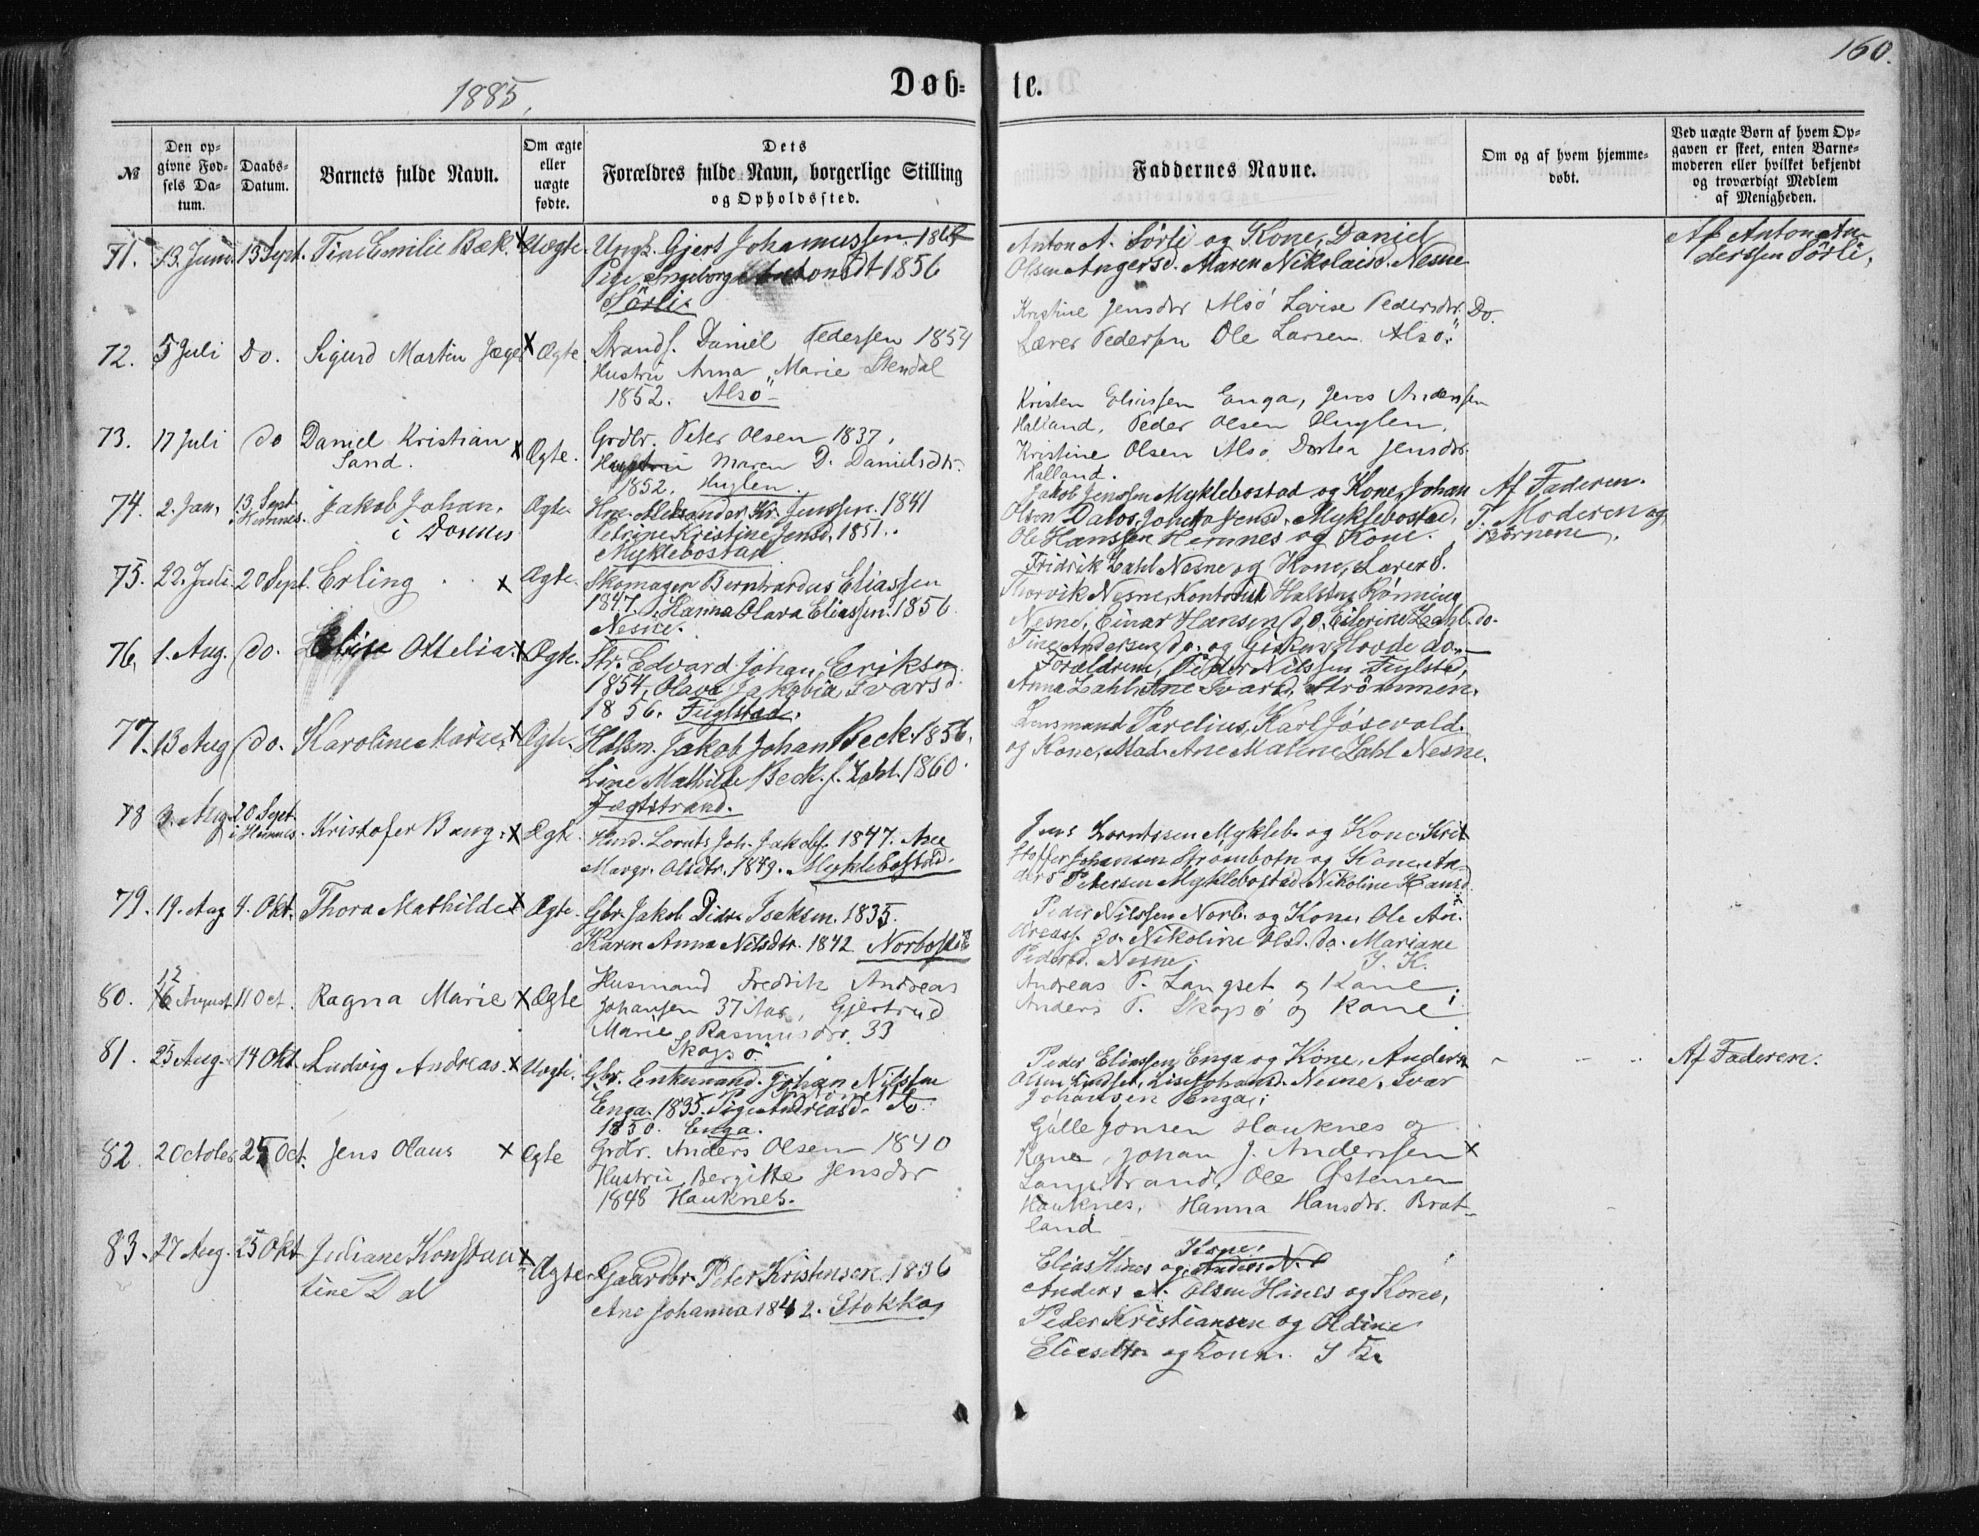 160.
1885.
Døb-
te.
№
Den op-
givne Fød-
sels Da-
tum.
Daabs-
Datum.
Barnets fulde Navn.
Om ægte
eller
uægte
fødte.
Dets
Forældres fulde Navn, borgerlige Stilling
og Opholdssted.
Faddernes Navne.
Om og af hvem hjemme-
døbt.
Ved uægte Børn af hvem Op-
gaven er skeet, enten Barne-
moderen eller hvilket bekjendt
og troværdigt Medlem
af Menigheden.
71. 13. Juni 13 Sept. Tine Emilie Bæk. x Uægte. Ungk. Gjert Johannessen
Pige Ingeborg Antonsdt 1856
Sörli.
Anton A. Sörli og Kone, Daniel
Olsen Angersd. Maren Nikolaisd. Nesne
Af Anton An-
derssen Sörli.
72. 5 Juli Do. Sigurd Martin Jæger x Ægte. Strands. Daniel Pedersen 1854
Hustru Anna Marie Stendal
1852. Alsö
Kristine Jensdtr Alsö Lovise Pedersdtr. Do.
Lærer Pedersen Ole Larsen Alsö.
73. 17 Juli do Daniel Kristian
Sand. x Ægte. Grdbr. Peter Olsen 1837,
Hustru Maren D. Danielsdtr.
1852. Huglen.
Kristen Eliassen Enga, Jens Andersen
Halland, Peder Olsen Huglen,
Kristine Olsen Alsö, Dortea Jensdtr.
Halland.
74. 2. Jan. 13. Sept
i Hemnes. Jakob Johan,
i Donnes Ægte. Hm. Aleksander Kr. Jenssen. 1841
Petrine Kristine Jensd. 1851.
Myklebostad
Jakob Jenssen Myklebostad og Kone, Johan
Olsen Dalos, Johanna Jensd. Myklebostad,
Ole Hanssen Hemnes og Kone.
Af Faderen.
T. Moderen og
Börnene.
75. 22. Juli 20 Sept. Erling x Ægte. Skomager Bernhardus Eliassen
1847. Hanna Olava Eliassen. 1856.
Nesne.
Fridrik Zahl Nesne og Kone, Lærer S.
Thorvik Nesne, Kontorist Halsten Rönning
Nesne, Einar Hansen do. Eilerine Zahl do.
Tine Andersen do. og Gisken Hovde do.
76. 1. Aug. do. Elise Ottelia. x Ægte. Str. Edvard Johan Eriksen
1854, Olava Jakobia Ivarsd.
1856. Fuglstad.
Forældrene, Peder Nilssen Fuglstad,
Anna Zahl, Ane Ivarsd. Strömmen.
77. 13 Aug do. Karoline Marie, x Ægte. Husm. Jakob Johan Beck. 1856.
Line Mathilde Beck f. Zahl. 1860.
Jægtstrand.
Lensmand Parelius, Karl Jösevold
og Kone, Mad. Ane Malene Zahl Nesne.
78 3. Aug. 20 Sept.
i Hemnes. Kristofer Bang. x Ægte. Hmd. Lornts Joh. Jakobs. 1847. Ane
Margr. Olsdtr. 1849. Myklebostad.
Jens Lorntssen Mykleb. og Kone Kri
stoffer Johansen Strömbotn og Kone, An-
ders Petersen Myklebostad Nikoline Hansd.
79. 19. Aug 4. Okt. Thora Mathilde x Ægte. Gbr. Jakob Didr. Isaksen. 1835.
Karen Anna Nilsdtr. 1842. Norbostad
Peder Nilssen Norb. og Kone, Ole An-
dreass. do. Nikoline Olsd. do. Mariane
Pedersd. Nesne. I. K.
80. 12 August 11 Oct. Ragna Marie x Ægte Husmand Fredrik Andreas
Johansen 37 Aar, Gjertrud
Marie Rasmusdtr. 33
Skogsö
Andreas P. Langset og Kone.
Anders P. Skogsö og Kone
81. 25 Aug. 14 Okt. Ludvig Andreas. x Uægte. Gbr. Enkemand. Johan Nilssen
Enga. 1835. Pige Antonette
Andreasd.
1850. Enga.
Peder Eliassen Enga og Kone, Anders
Olsen Lindset, Lise Johansd. Nesne, Ivar
Johansen Enga.
Af Faderen.
82. 2 October 25 Oct. Jens Olaus x Ægte Grdr. Anders Olsen 1840
Hustru Bergitte Jensdtr
1848 Hauknes.
Gulle Jonsen Hauknes og
Kone, Johan J. Anderssen x
Langstrand, Ole Østensen
Hauknes, Hanna Hansdtr. Brat-
land
83. 27 Aug. 25 Okt Juliane Konstan
tine Dal x Ægte Gaardbr. Peter Kristensen. 1836
Ane Johanna 1842. Stokka
Kone,
Elias Hines og Anders N.
Anders N. Olsen Hines og Kone,
Peder Kristiansen og Oldine
Eliesdtr og Kone.